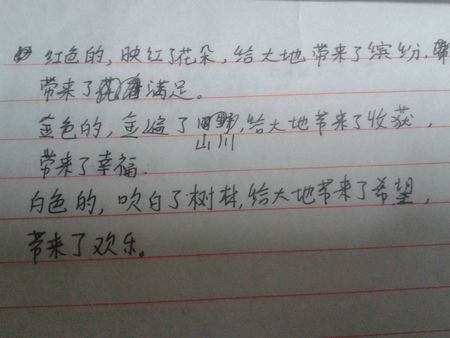 红色的，映红了花朵，给大地带来了缤纷，
带来了满足。
金色的，金遍了山川，给大地带来了收获，
带来了幸福.
白色的，吹白了树林，给大地带来了希望，
带来了欢乐。